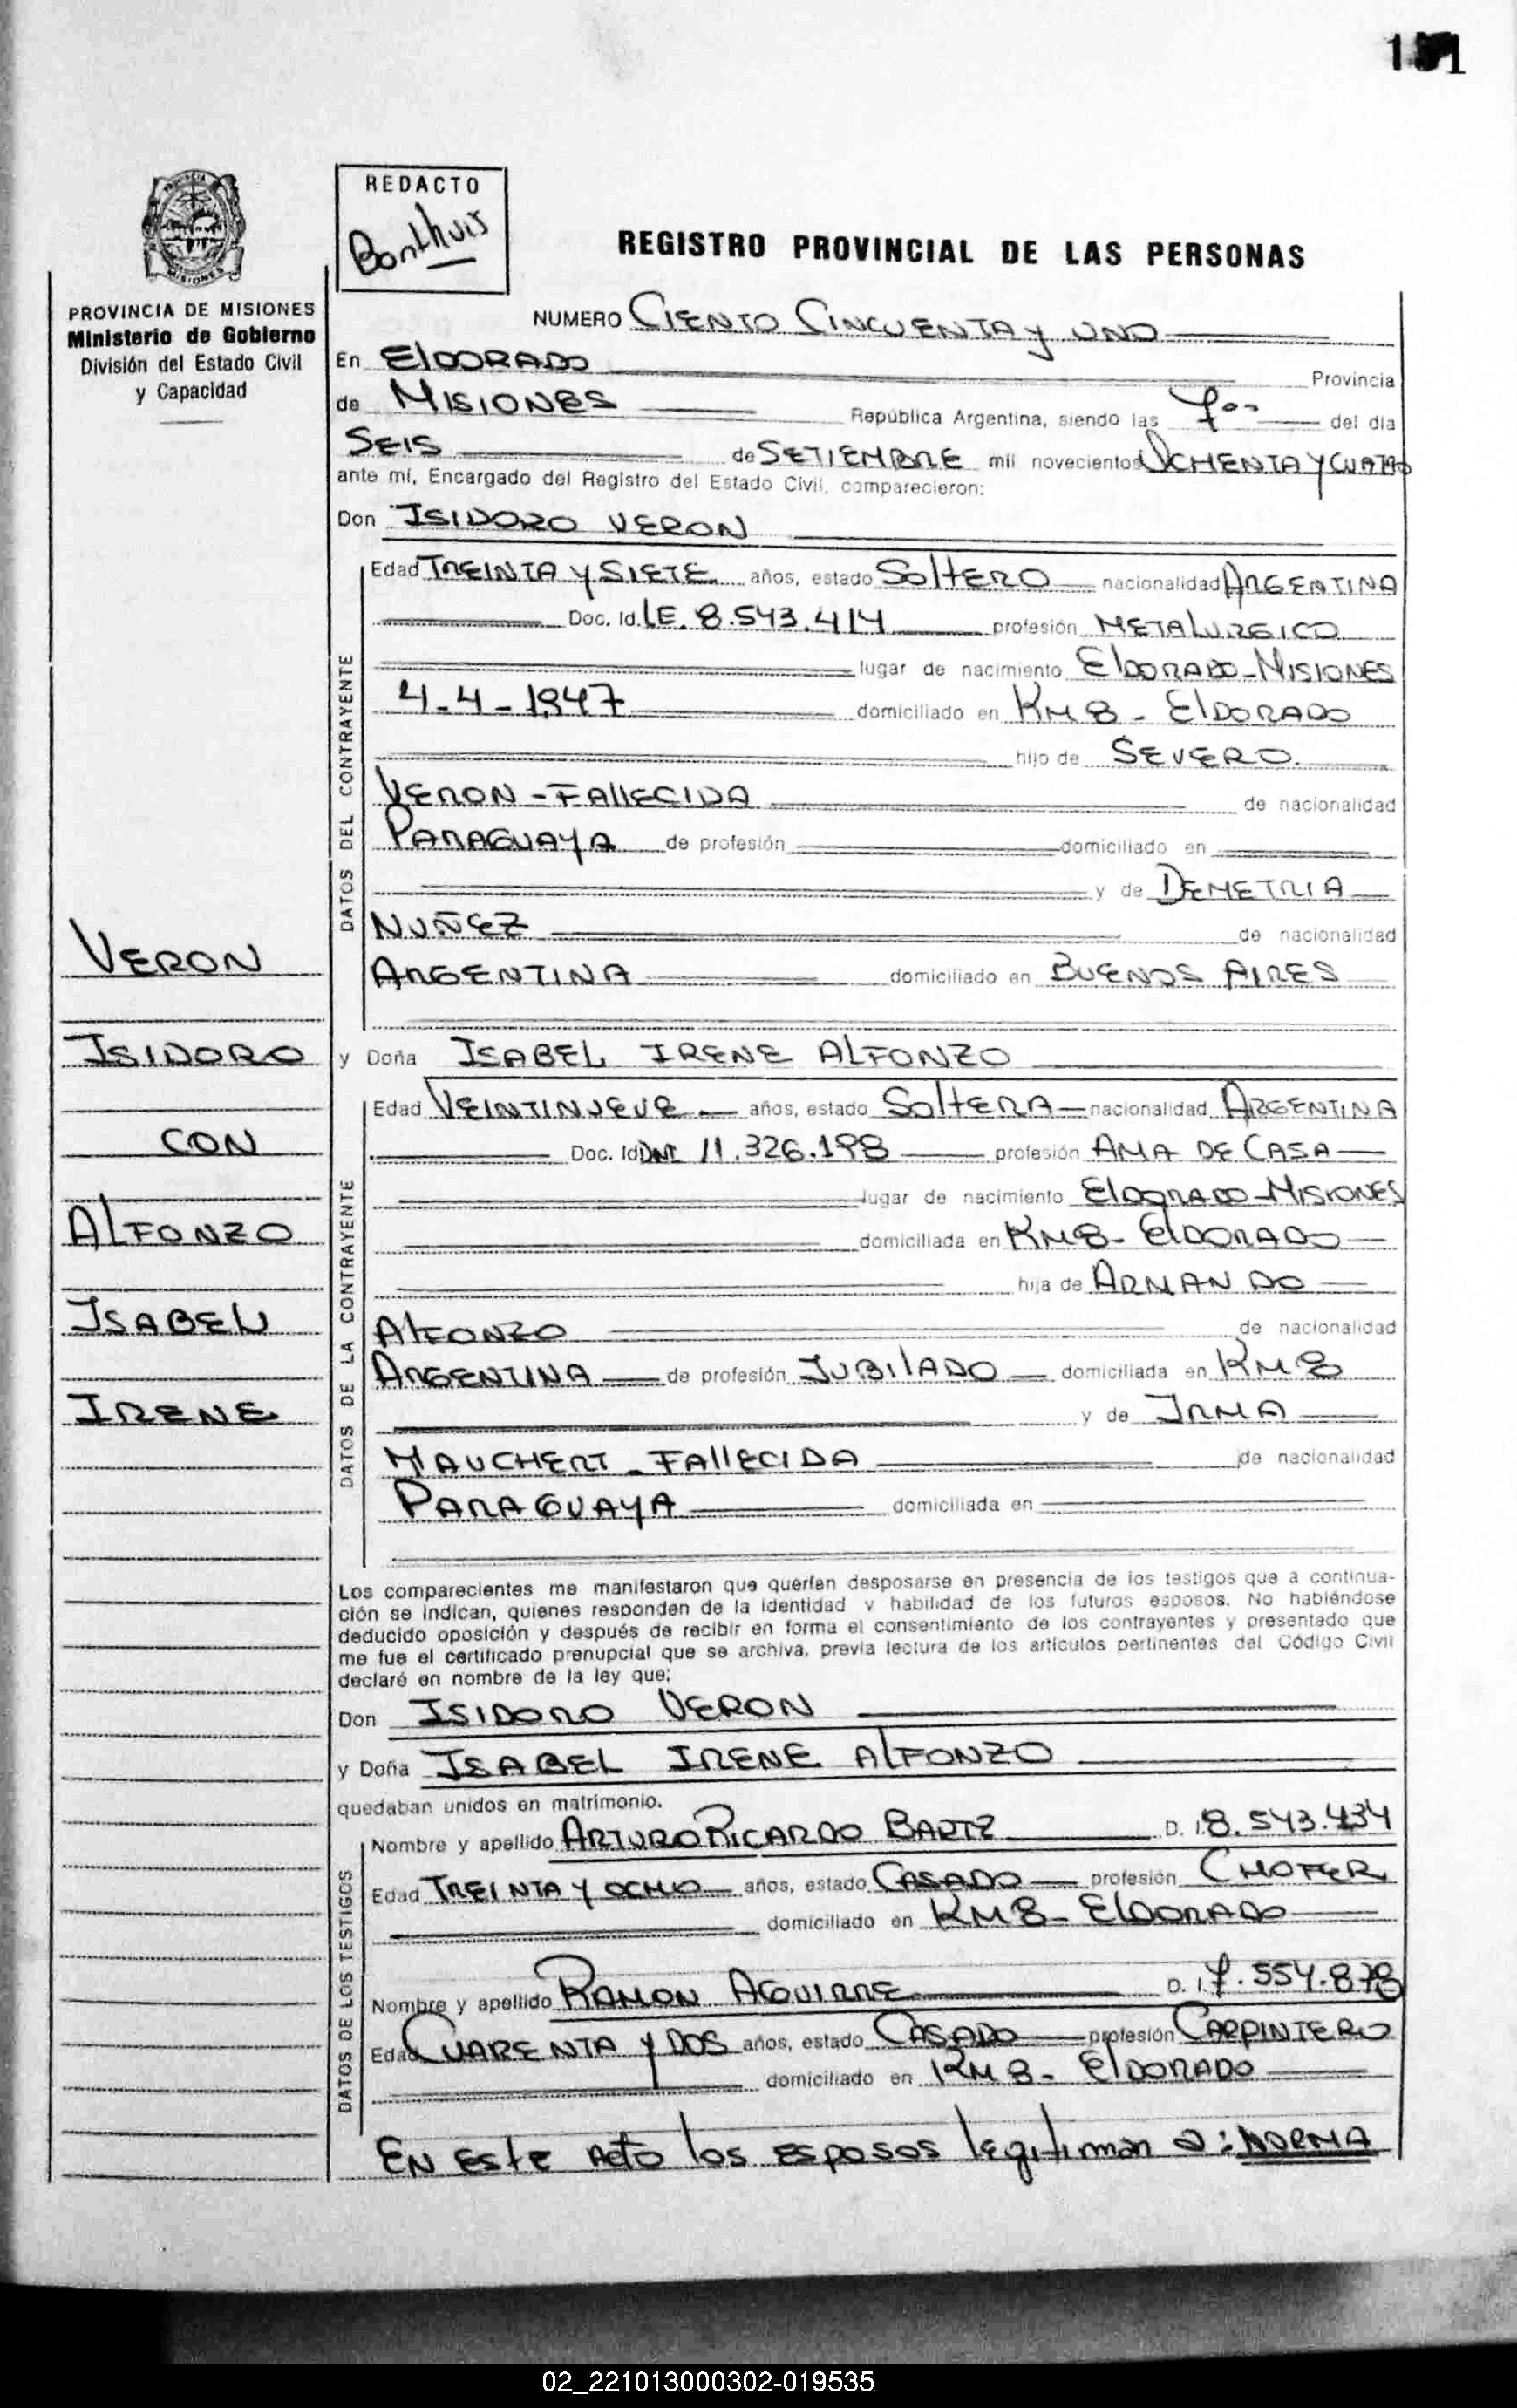 REDACTO
Bonthuis
REGISTRO PROVINCIAL DE LAS PERSONAS
PROVINCIA DE MISIONES
Ministerio de Gobierno
División del Estado Civil
y Capacidad
NUMERO CIENTO CINCUENTA Y UNO
En ELDORADO Provincia
de MISIONES República Argentina, siendo las del día
SEIS de SETIEMBRE mil novecientos OCHENTA Y CUATRO
ante mí, Encargado del Registro del Estado Civil, comparecieron:
Don ISIDORO VERON
DATOS DEL CONTRAYENTE
Edad TREINTA Y SIETE años, estado SOLTERO nacionalidad ARGENTINA
Doc. Id. LE. 8.543.414 profesión METALURGICO
lugar de nacimiento ELDORADO-MISIONES
4-4-1947 domiciliado en KM 8 - ELDORADO
hijo de SEVERO
VERON - FALLECIDA de nacionalidad
PARAGUAYA de profesión domiciliado en
y de DEMETRIA
NUÑEZ de nacionalidad
ARGENTINA domiciliado en BUENOS AIRES
VERON
ISIDORO
CON
ALFONZO
ISABEL
IRENE
y Doña ISABEL IRENE ALFONZO
DATOS DE LA CONTRAYENTE
Edad VEINTINUEVE años, estado SOLTERA nacionalidad ARGENTINA
Doc. Id DNI 11.326.198 profesión AMA DE CASA
lugar de nacimiento ELDORADO-MISIONES
domiciliada en KM 8 - ELDORADO
hija de ARMANDO
ALFONZO de nacionalidad
ARGENTINA de profesión JUBILADO domiciliada en KM 8
y de IRMA
MAUCHERT - FALLECIDA de nacionalidad
PARAGUAYA domiciliada en
Los comparecientes me manifestaron que querían desposarse en presencia de los testigos que a continua-
ción se indican, quienes responden de la identidad y habilidad de los futuros esposos. No habiéndose
deducido oposición y después de recibir en forma el consentimiento de los contrayentes y presentado que
me fue el certificado prenupcial que se archiva, previa lectura de los artículos pertinentes del Código Civil
declaré en nombre de la ley que:
Don ISIDORO VERON
y Doña ISABEL IRENE ALFONZO
quedaban unidos en matrimonio.
DATOS DE LOS TESTIGOS
Nombre y apellido ARTURO RICARDO BARTZ D. I. 8.543.434
Edad TREINTA Y OCHO años, estado CASADO profesión CHOFER
domiciliado en KM 8 - ELDORADO
Nombre y apellido RAMON AGUIRRE D. I. 7.554.878
Edad CUARENTA Y DOS años, estado CASADO profesión CARPINTERO
domiciliado en KM 8 - ELDORADO
EN ESTE ACTO los ESPOSOS legitiman a: NORMA
02_221013000302-019535